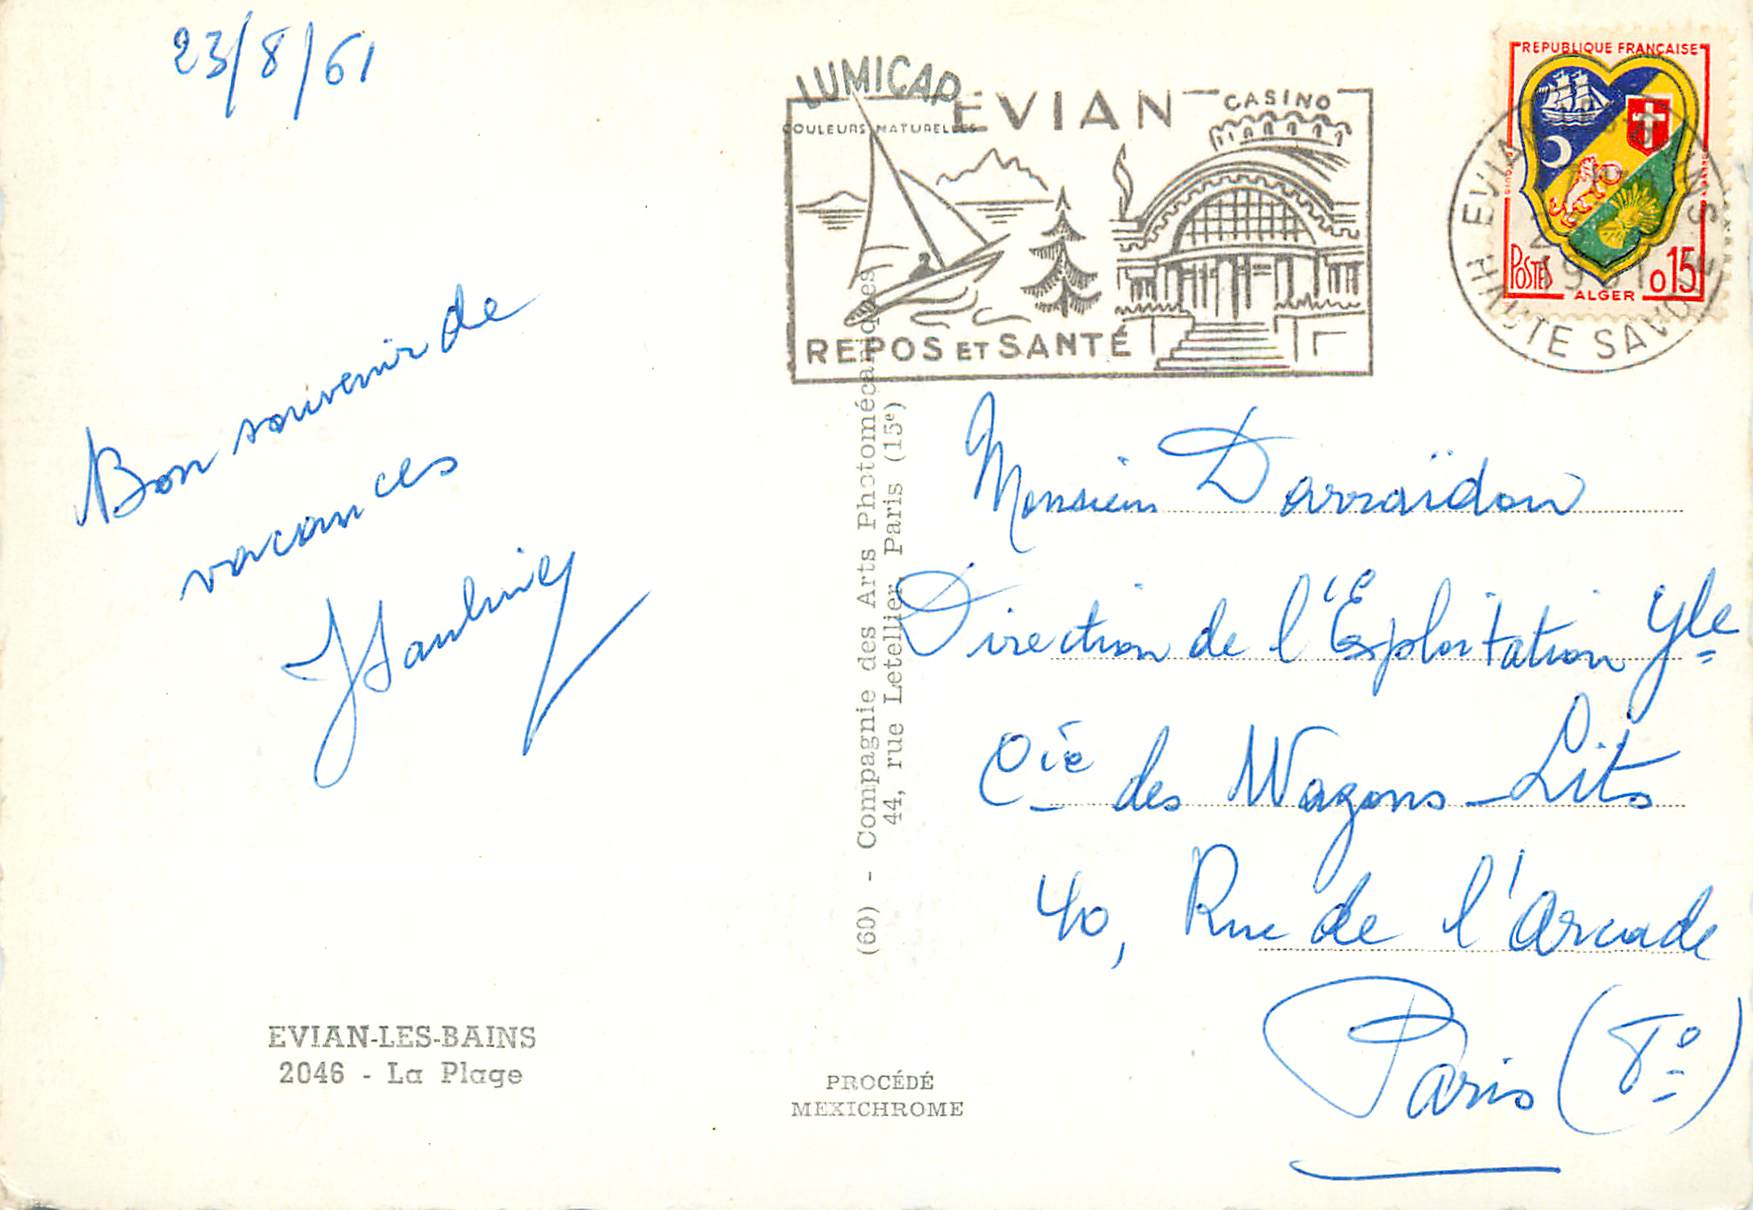 23/8/61
Bon souvenir de
vacances
LUMICAP
COULEURS NATURELLES
EVIAN
CASINO
REPOS ET SANTÉ
REPUBLIQUE FRANÇAISE
POSTES
ALGER
0,15
EVIAN LES BAINS
1961
HAUTE SAVOIE
(60) - Compagnie des Arts Photomécaniques
44, rue Letellier, Paris (15e)
Monsieur Darraïdou
Direction de l'Exploitation Gle
Cie des Wagons-Lits
40, Rue de l'Arcade
Paris (8e)
EVIAN-LES-BAINS
2046 - La Plage
PROCÉDÉ
MEXICHROME